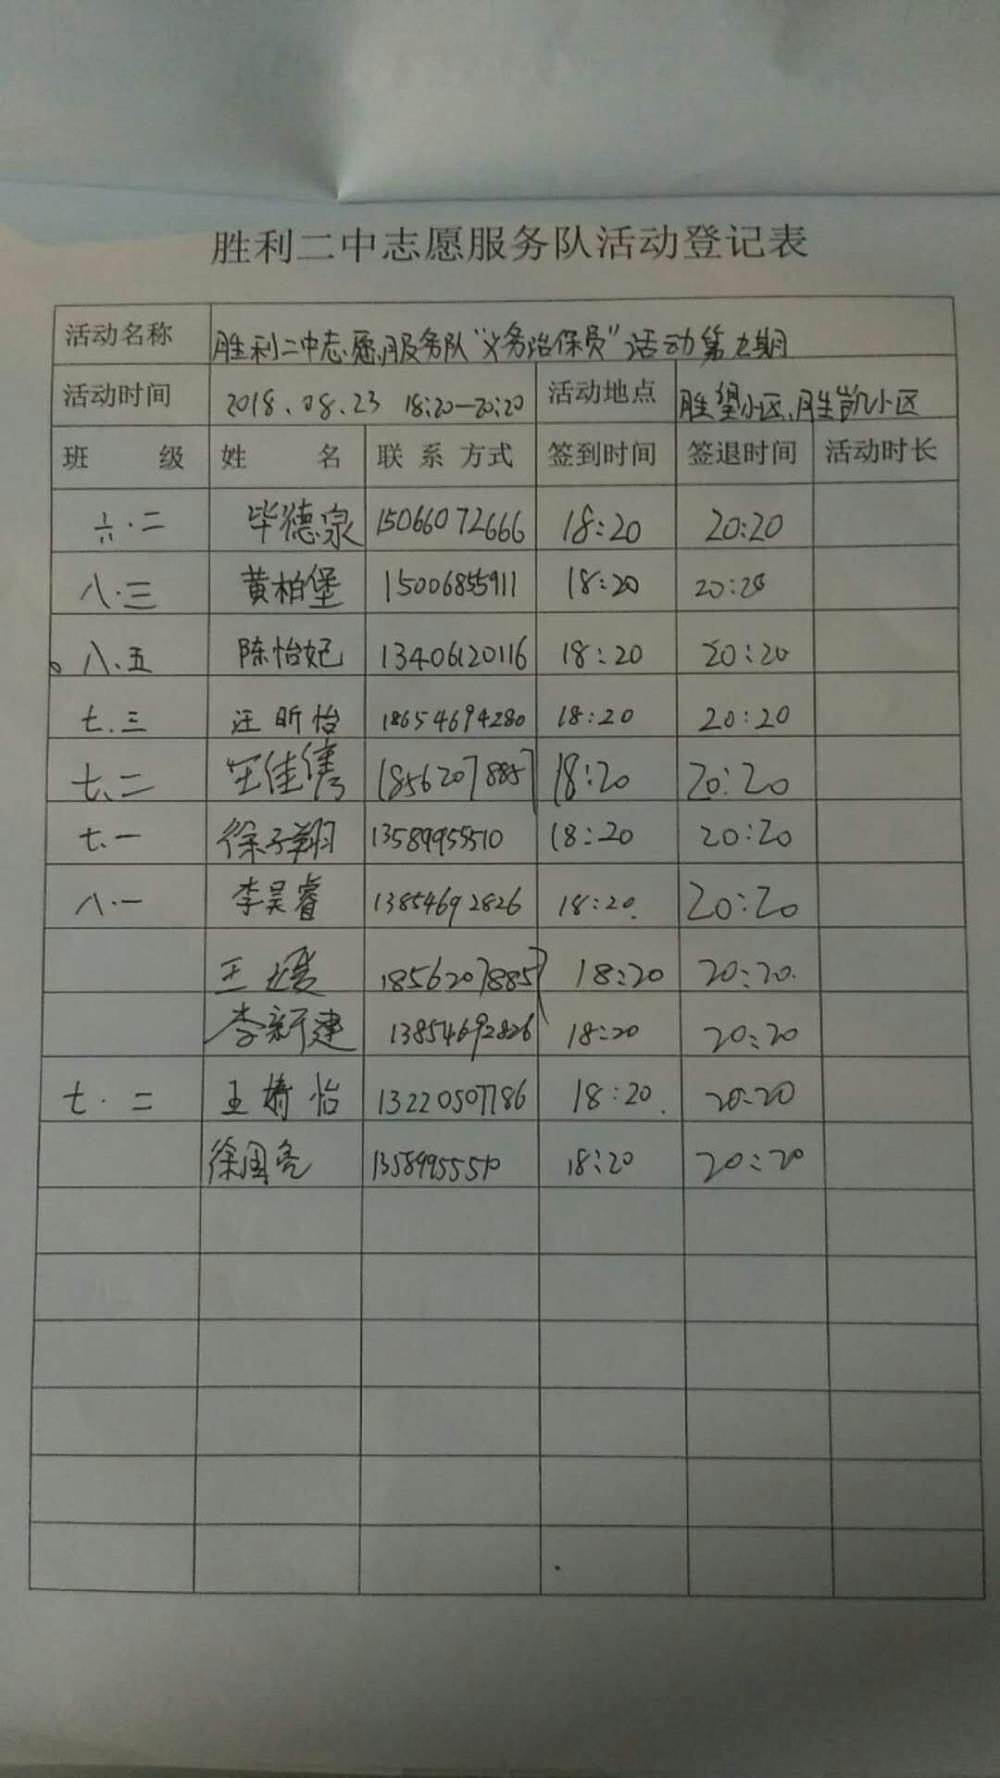 胜利二中志愿服务队活动登记表
活动名称 胜利二中志愿服务队“义务治保员”活动第九期
活动时间 2018.08.23 18:20—20:20 活动地点 胜望小区、胜凯小区
班 级 姓 名 联系方式 签到时间 签退时间 活动时长
六.二 毕德泉 15066072666 18:20 20:20
八.三 黄柏堡 15006855911 18:20 20:20
八.五 陈怡妃 13406120116 18:20 20:20
七.三 汪昕怡 18654694280 18:20 20:20
七.二 王佳隽 18562078857 18:20 20:20
七.一 徐子翔 13589955510 18:20 20:20
八.一 李昊睿 13854692826 18:20. 20:20
王 18562078857 18:20 20:20.
李新建 13854692826 18:20 20:20
七.二 王婧怡 13220507786 18:20. 20:20
徐国亮 13589955510 18:20 20:20